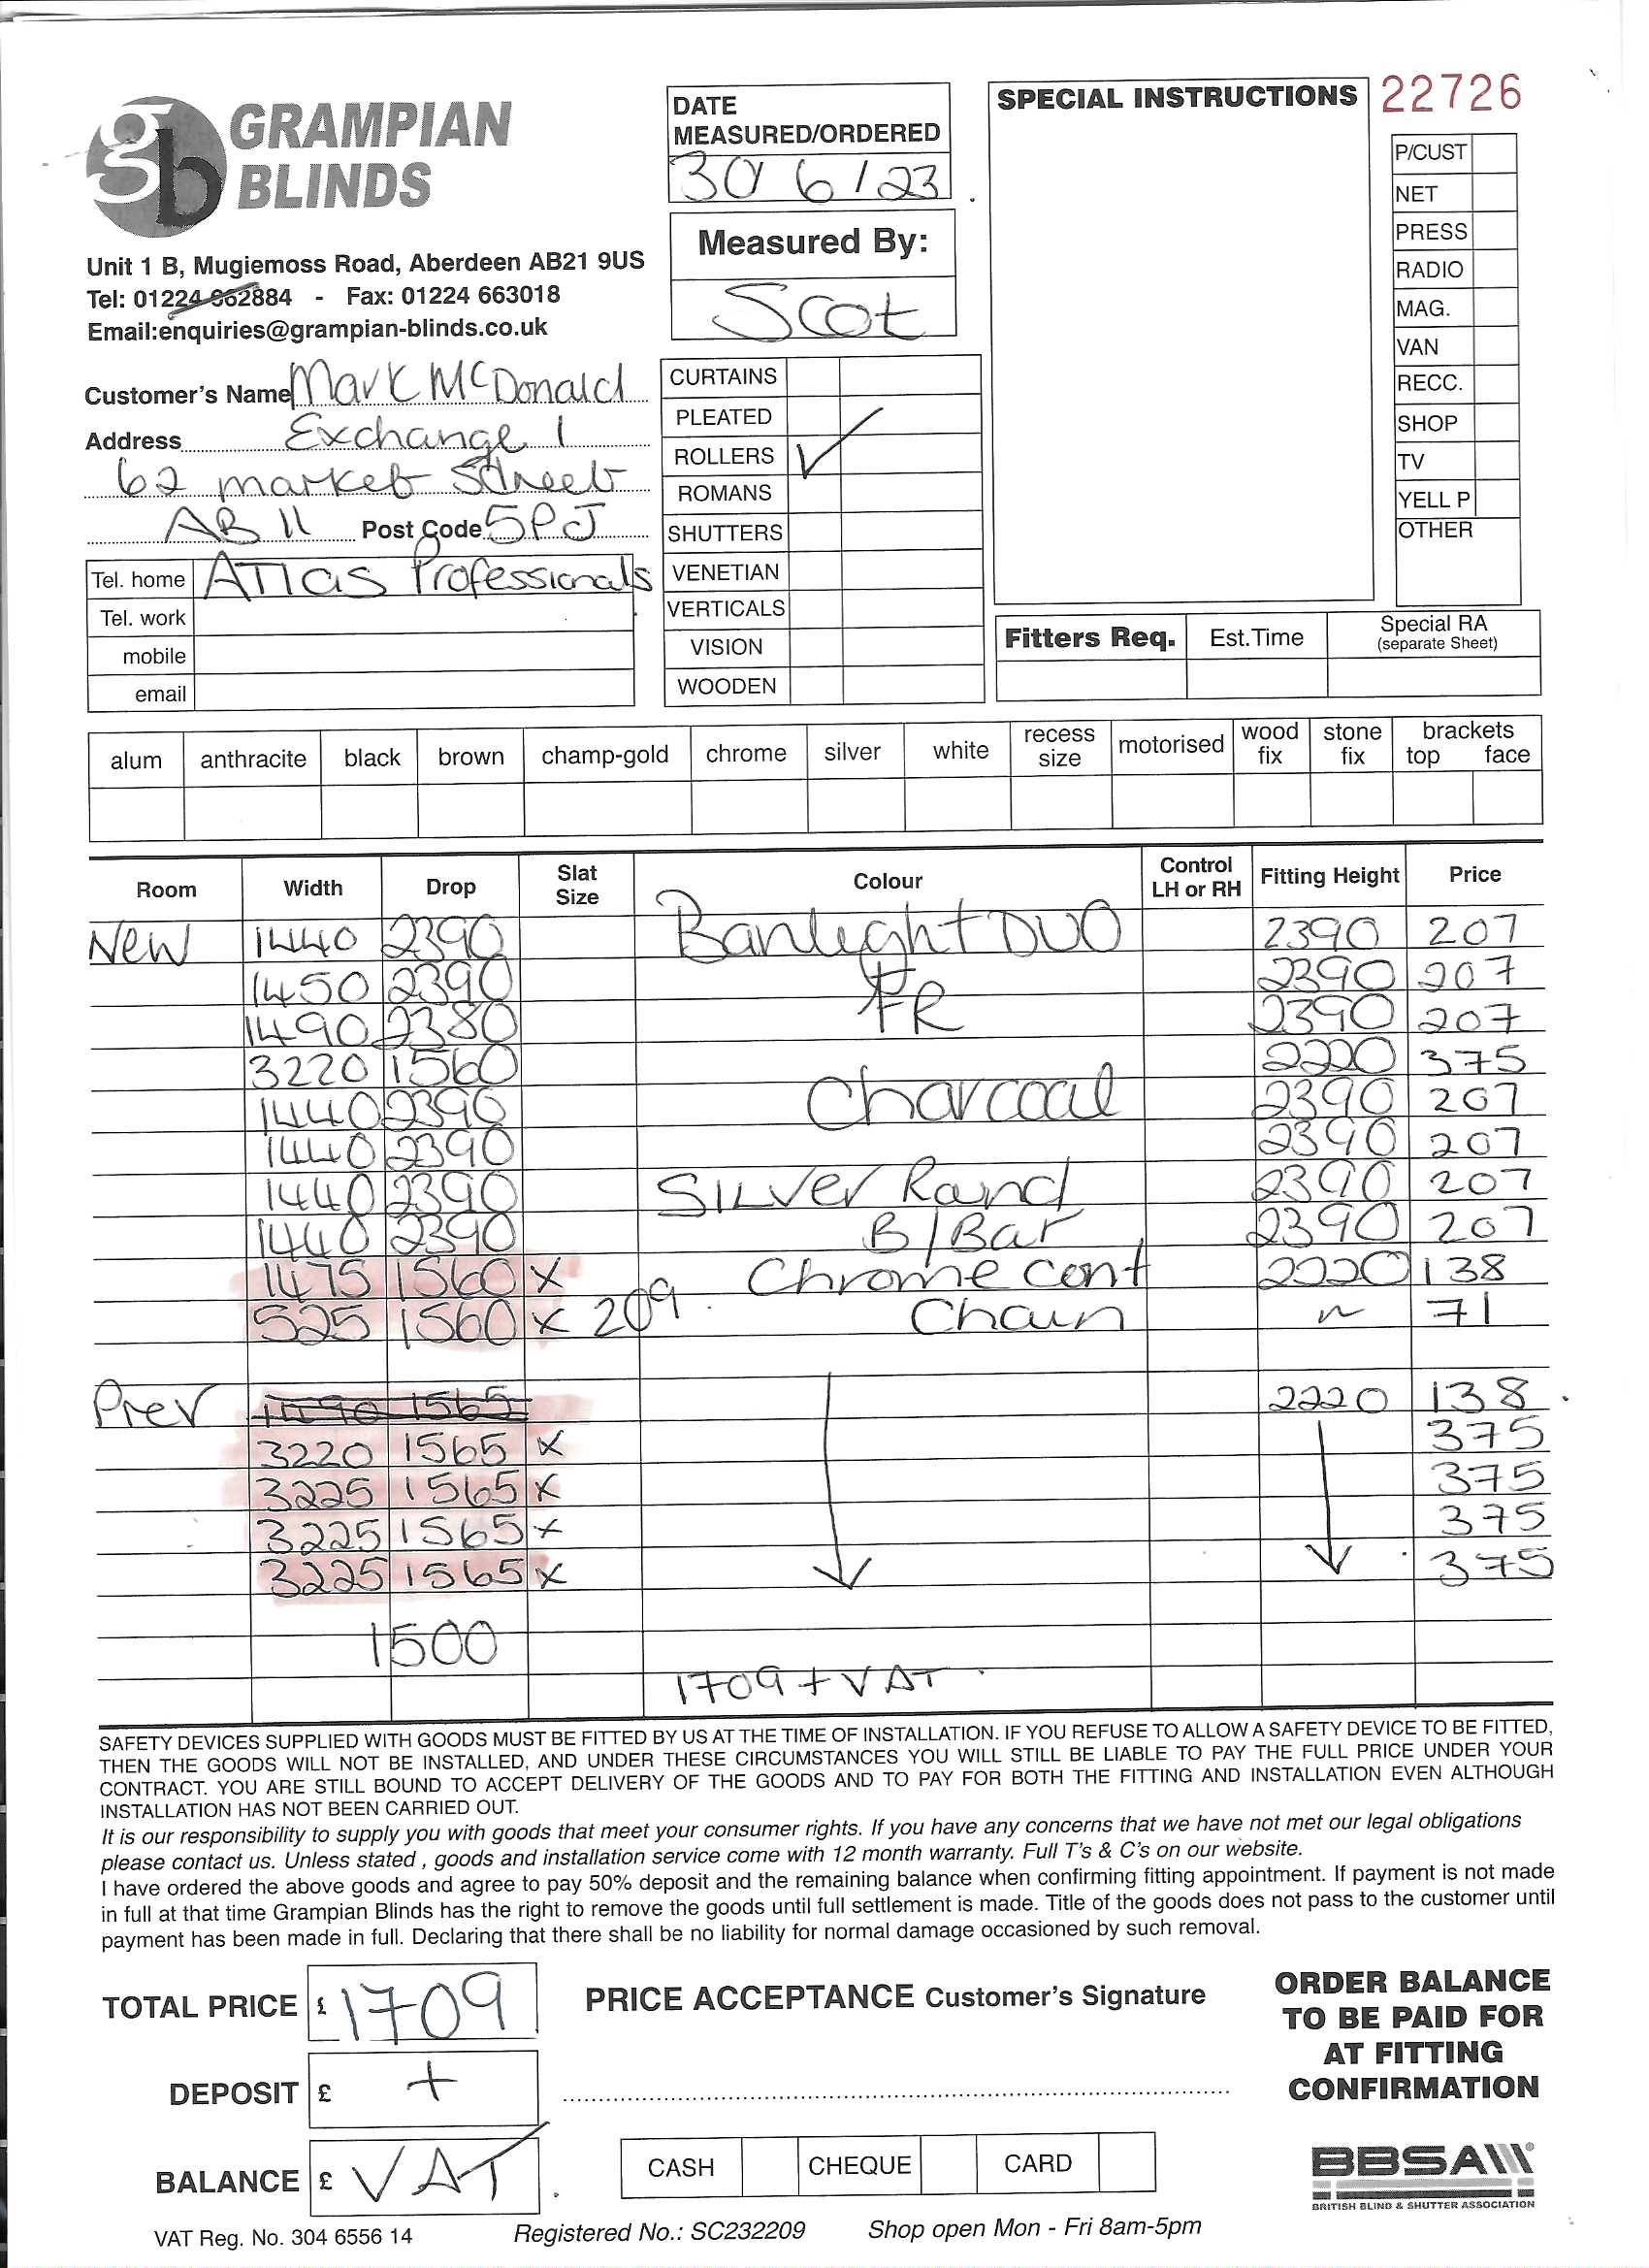 gb GRAMPIAN BLINDS
Unit 1 B, Mugiemoss Road, Aberdeen AB21 9US
Tel: 01224 662884 - Fax: 01224 663018
Email:enquiries@grampian-blinds.co.uk
DATE MEASURED/ORDERED
30/6/23
Measured By:
Scot
SPECIAL INSTRUCTIONS
22726
P/CUST
NET
PRESS
RADIO
MAG.
VAN
RECC.
SHOP
TV
YELL P
OTHER
Customer's Name Mark McDonald
Address Exchange 1
62 market Street
AB11 Post Code 5PJ
Tel. home Atlas Professionals
Tel. work
mobile
email
CURTAINS
PLEATED
ROLLERS ✓
ROMANS
SHUTTERS
VENETIAN
VERTICALS
VISION
WOODEN
Fitters Req. Est.Time Special RA (separate Sheet)
alum anthracite black brown champ-gold chrome silver white recess size motorised wood fix stone fix brackets top face
Room Width Drop Slat Size Colour Control LH or RH Fitting Height Price
New 1440 2390 Banlight DUO 2390 207
1450 2390 FR 2390 207
1490 2380 2390 207
3220 1560 2220 375
1440 2390 Charcoal 2390 207
1440 2390 2390 207
1440 2390 SILVer Rand 2390 207
1440 2390 B/Bar 2390 207
1475 1560 x Chrome cont 2220 138
525 1560 x 209. Chain 71
Prev 1490 1565 2220 138
3220 1565 x 375
3225 1565 x 375
3225 1565 x 375
3225 1565 x 375
1500
1709 + VAT
SAFETY DEVICES SUPPLIED WITH GOODS MUST BE FITTED BY US AT THE TIME OF INSTALLATION. IF YOU REFUSE TO ALLOW A SAFETY DEVICE TO BE FITTED,
THEN THE GOODS WILL NOT BE INSTALLED, AND UNDER THESE CIRCUMSTANCES YOU WILL STILL BE LIABLE TO PAY THE FULL PRICE UNDER YOUR
CONTRACT. YOU ARE STILL BOUND TO ACCEPT DELIVERY OF THE GOODS AND TO PAY FOR BOTH THE FITTING AND INSTALLATION EVEN ALTHOUGH
INSTALLATION HAS NOT BEEN CARRIED OUT.
It is our responsibility to supply you with goods that meet your consumer rights. If you have any concerns that we have not met our legal obligations
please contact us. Unless stated , goods and installation service come with 12 month warranty. Full T's & C's on our website.
I have ordered the above goods and agree to pay 50% deposit and the remaining balance when confirming fitting appointment. If payment is not made
in full at that time Grampian Blinds has the right to remove the goods until full settlement is made. Title of the goods does not pass to the customer until
payment has been made in full. Declaring that there shall be no liability for normal damage occasioned by such removal.
TOTAL PRICE £ 1709
DEPOSIT £ +
BALANCE £ VAT
PRICE ACCEPTANCE Customer's Signature
CASH CHEQUE CARD
ORDER BALANCE
TO BE PAID FOR
AT FITTING
CONFIRMATION
BBSA
BRITISH BLIND & SHUTTER ASSOCIATION
VAT Reg. No. 304 6556 14 Registered No.: SC232209 Shop open Mon - Fri 8am-5pm